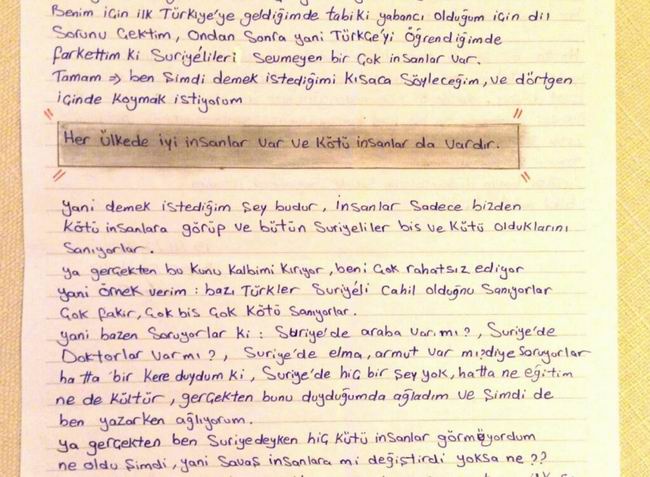 Benim için ilk Türkiye'ye geldiğimde tabi ki yabancı olduğum için dil
Sorunu Çektim, Ondan Sonra yani Türkçe'yi Öğrendiğimde
farkettim ki Suriyélileri Sevmeyen bir Çok insanlar var.
Tamam ⇒ ben Şimdi demek istediğimi Kısaca Söyleceğim, ve dörtgen
içinde Koymak istiyorum
" Her ülkede iyi insanlar var ve Kötü insanlar da vardır. "
Yani demek istediğim Şey budur, insanlar Sadece bizden
Kötü insanlara görüp ve bütün Suriyeliler bis ve Kütü olduklarını
Sanıyorlar.
ya gerçekten bu Kunu Kalbimi Kırıyor, beni Çok rahatsız ediyor
yani örnek verim : bazı Türkler Suriyéli Cahil olduğnu Sanıyorlar
Çok fakir, Çok bis Çok Kötü Sanıyorlar.
yani bazen Soruyorlar ki : Suriye'de araba var mı?, Suriye'de
Doktorlar var mı?, Suriye'de elma, armut var mı?diye Soruyorlar
hatta bir Kere duydum ki, Suriye'de hiç bir Şey yok, hatta ne eğitim
ne de Kültür, gerçekten bunu duyduğumda ağladım ve Şimdi de
ben yazarken ağlıyorum.
ya gerçekten ben Suriyedeyken hiç Kütü insanlar görmüyordum
ne oldu Şimdi, yani Savaş insanlara mi değiştirdi yoksa ne ??